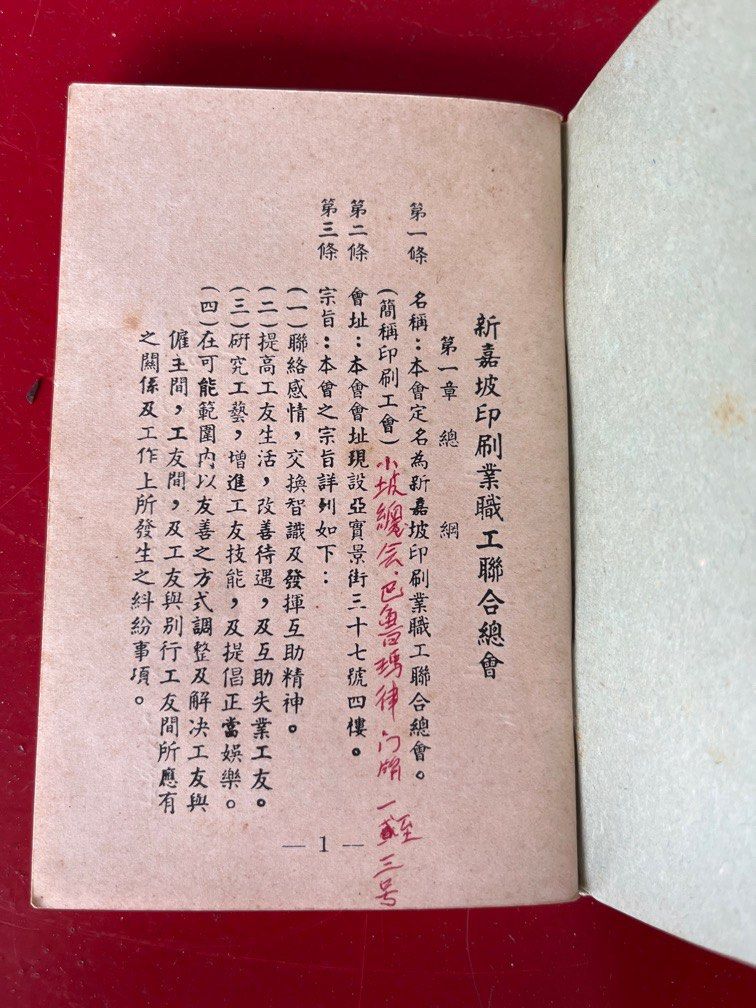 新嘉坡印刷業職工聯合總會
第一章 總綱
第一條 名稱：本會定名為新嘉坡印刷業職工聯合總會。
(簡稱印刷工會) 小坡纔会.巴魯瑪律门牌一二三号
第二條 會址：本會會址現設亞寶景街三十七號四樓。
第三條 宗旨：本會之宗旨詳列如下：
(一)聯絡感情，交換智識及發揮互助精神。
(二)提高工友生活，改善待遇，及互助失業工友。
(三)研究工藝，增進工友技能，及提倡正當娛樂。
(四)在可能範圍內以友善之方式調整及解決工友與
僱主間，工友間，及工友與別行工友間所應有
之關係及工作上所發生之糾紛事項。
— 1 —